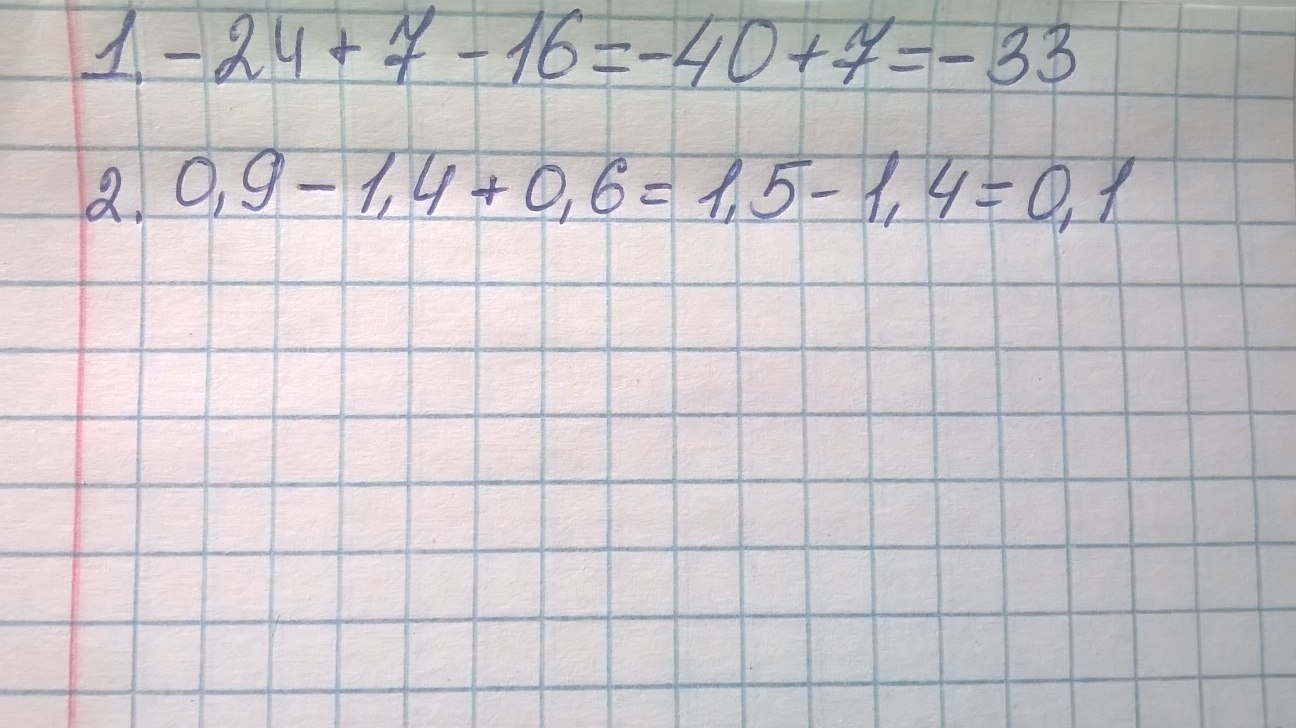 1. -24+7-16=-40+7=-33
2. 0,9-1,4+0,6=1,5-1,4=0,1